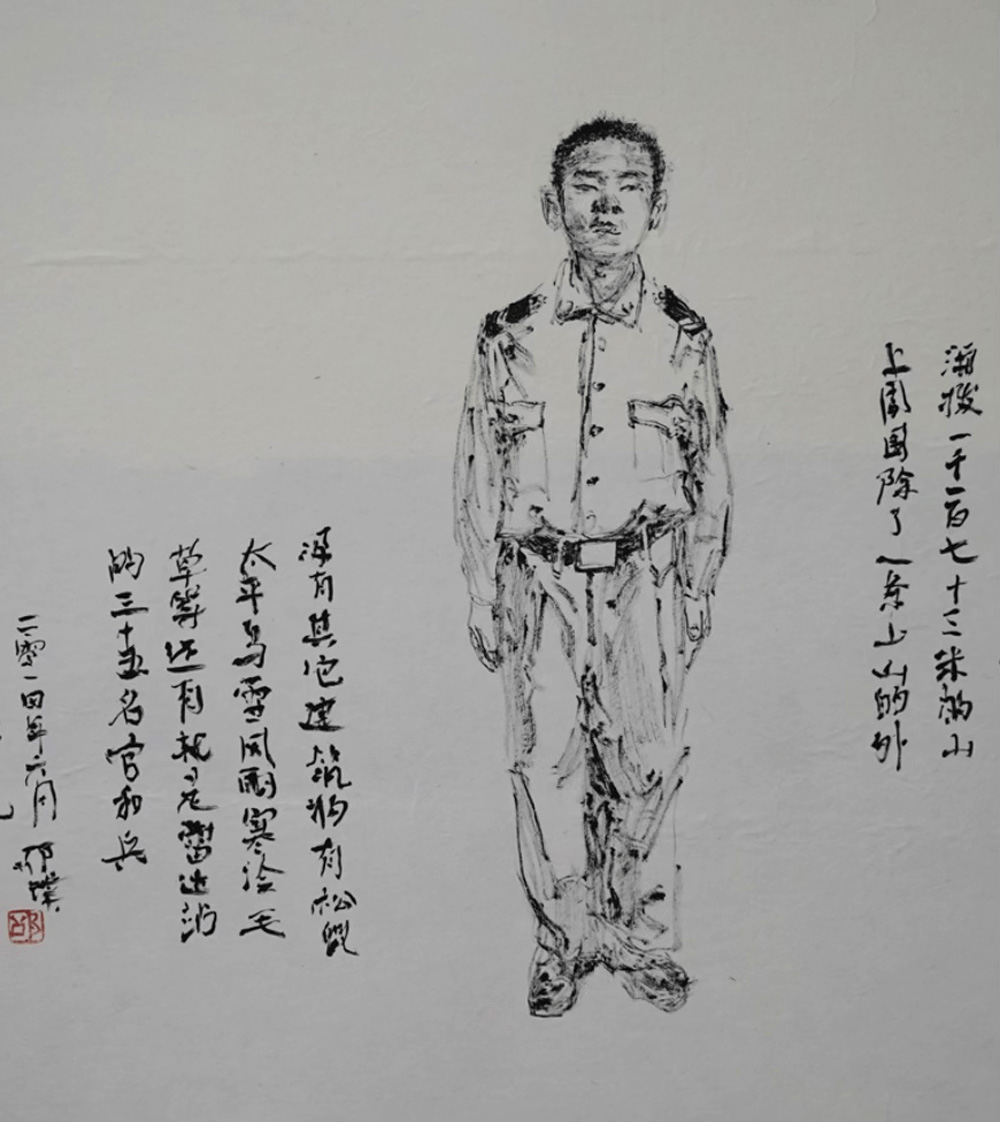 海拔一千一百七十三米的山
上周围除了一条上山的外
没有其它建筑物有松鼠
太平鸟雪风雨寒冷毛
草等还有就是雷达站
的三十五名官和兵
二零一四年六月 邵璞
邵